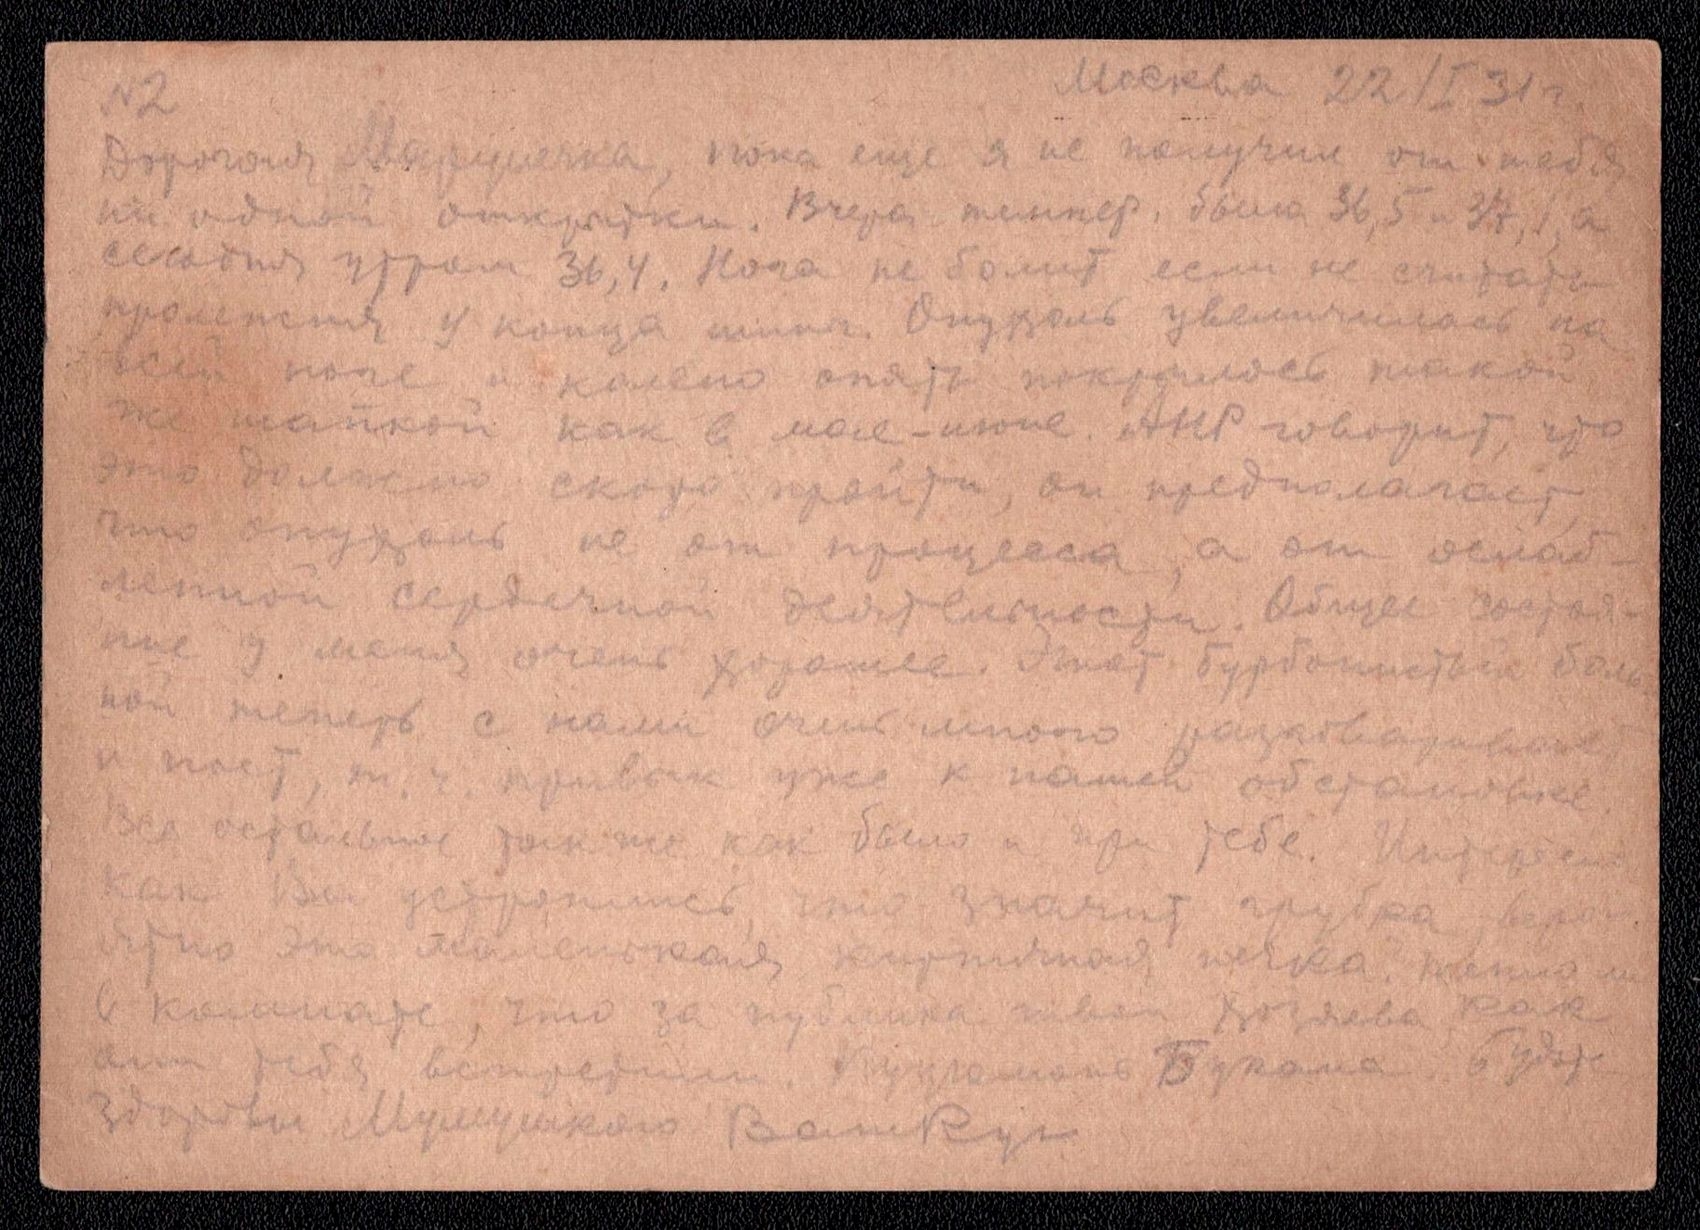 N2
Москва 22/I 31 г.
Дорогая Марусечка, пока еще я не получил от тебя
ни одной открытки. Вчера темпер. была 36,5 и 37,1, а
сегодня утром 36,4. Нога не болит если не считать
пролежня у конца шины. Опухоль увеличилась на
всей ноге и колено опять покрылось такой
же шапкой как в мае-июне. АНР говорит, что
это должно скоро пройти, он предполагает,
что опухоль не от процесса, а от ослаб-
ленной сердечной деятельности. Общее состоя-
ние у меня очень хорошее. Этот боль-
ной теперь с нами очень много разговаривает
и поет, т. ч. привык уже к нашей обстановке.
Все остальное так же как было и при тебе. Интересно
как Вы устроились, что значит грубка, веро-
ятно это маленькая кирпичная печка? тепло ли
в комнате, что за публика твои хозяева, как
они тебя встретили. Будьте
здоровы